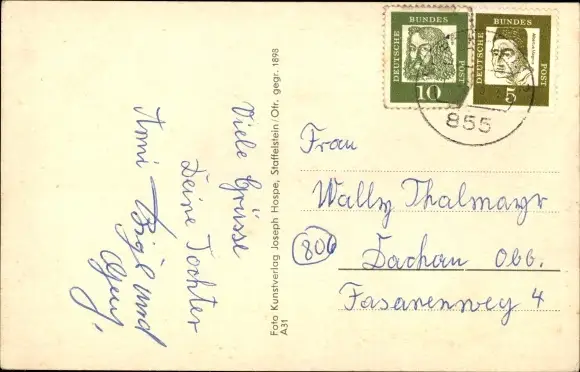 Viele Grüsse
Deine Tochter
Anni
und
Foto Kunstverlag Joseph Hospe, Staffelstein/Ofr. gegr. 1898
A31
DEUTSCHE BUNDES POST
10
DEUTSCHE BUNDES POST
5
855
Frau
Wally Thalmayr
(806) Dachau Obb.
Fasanenweg 4